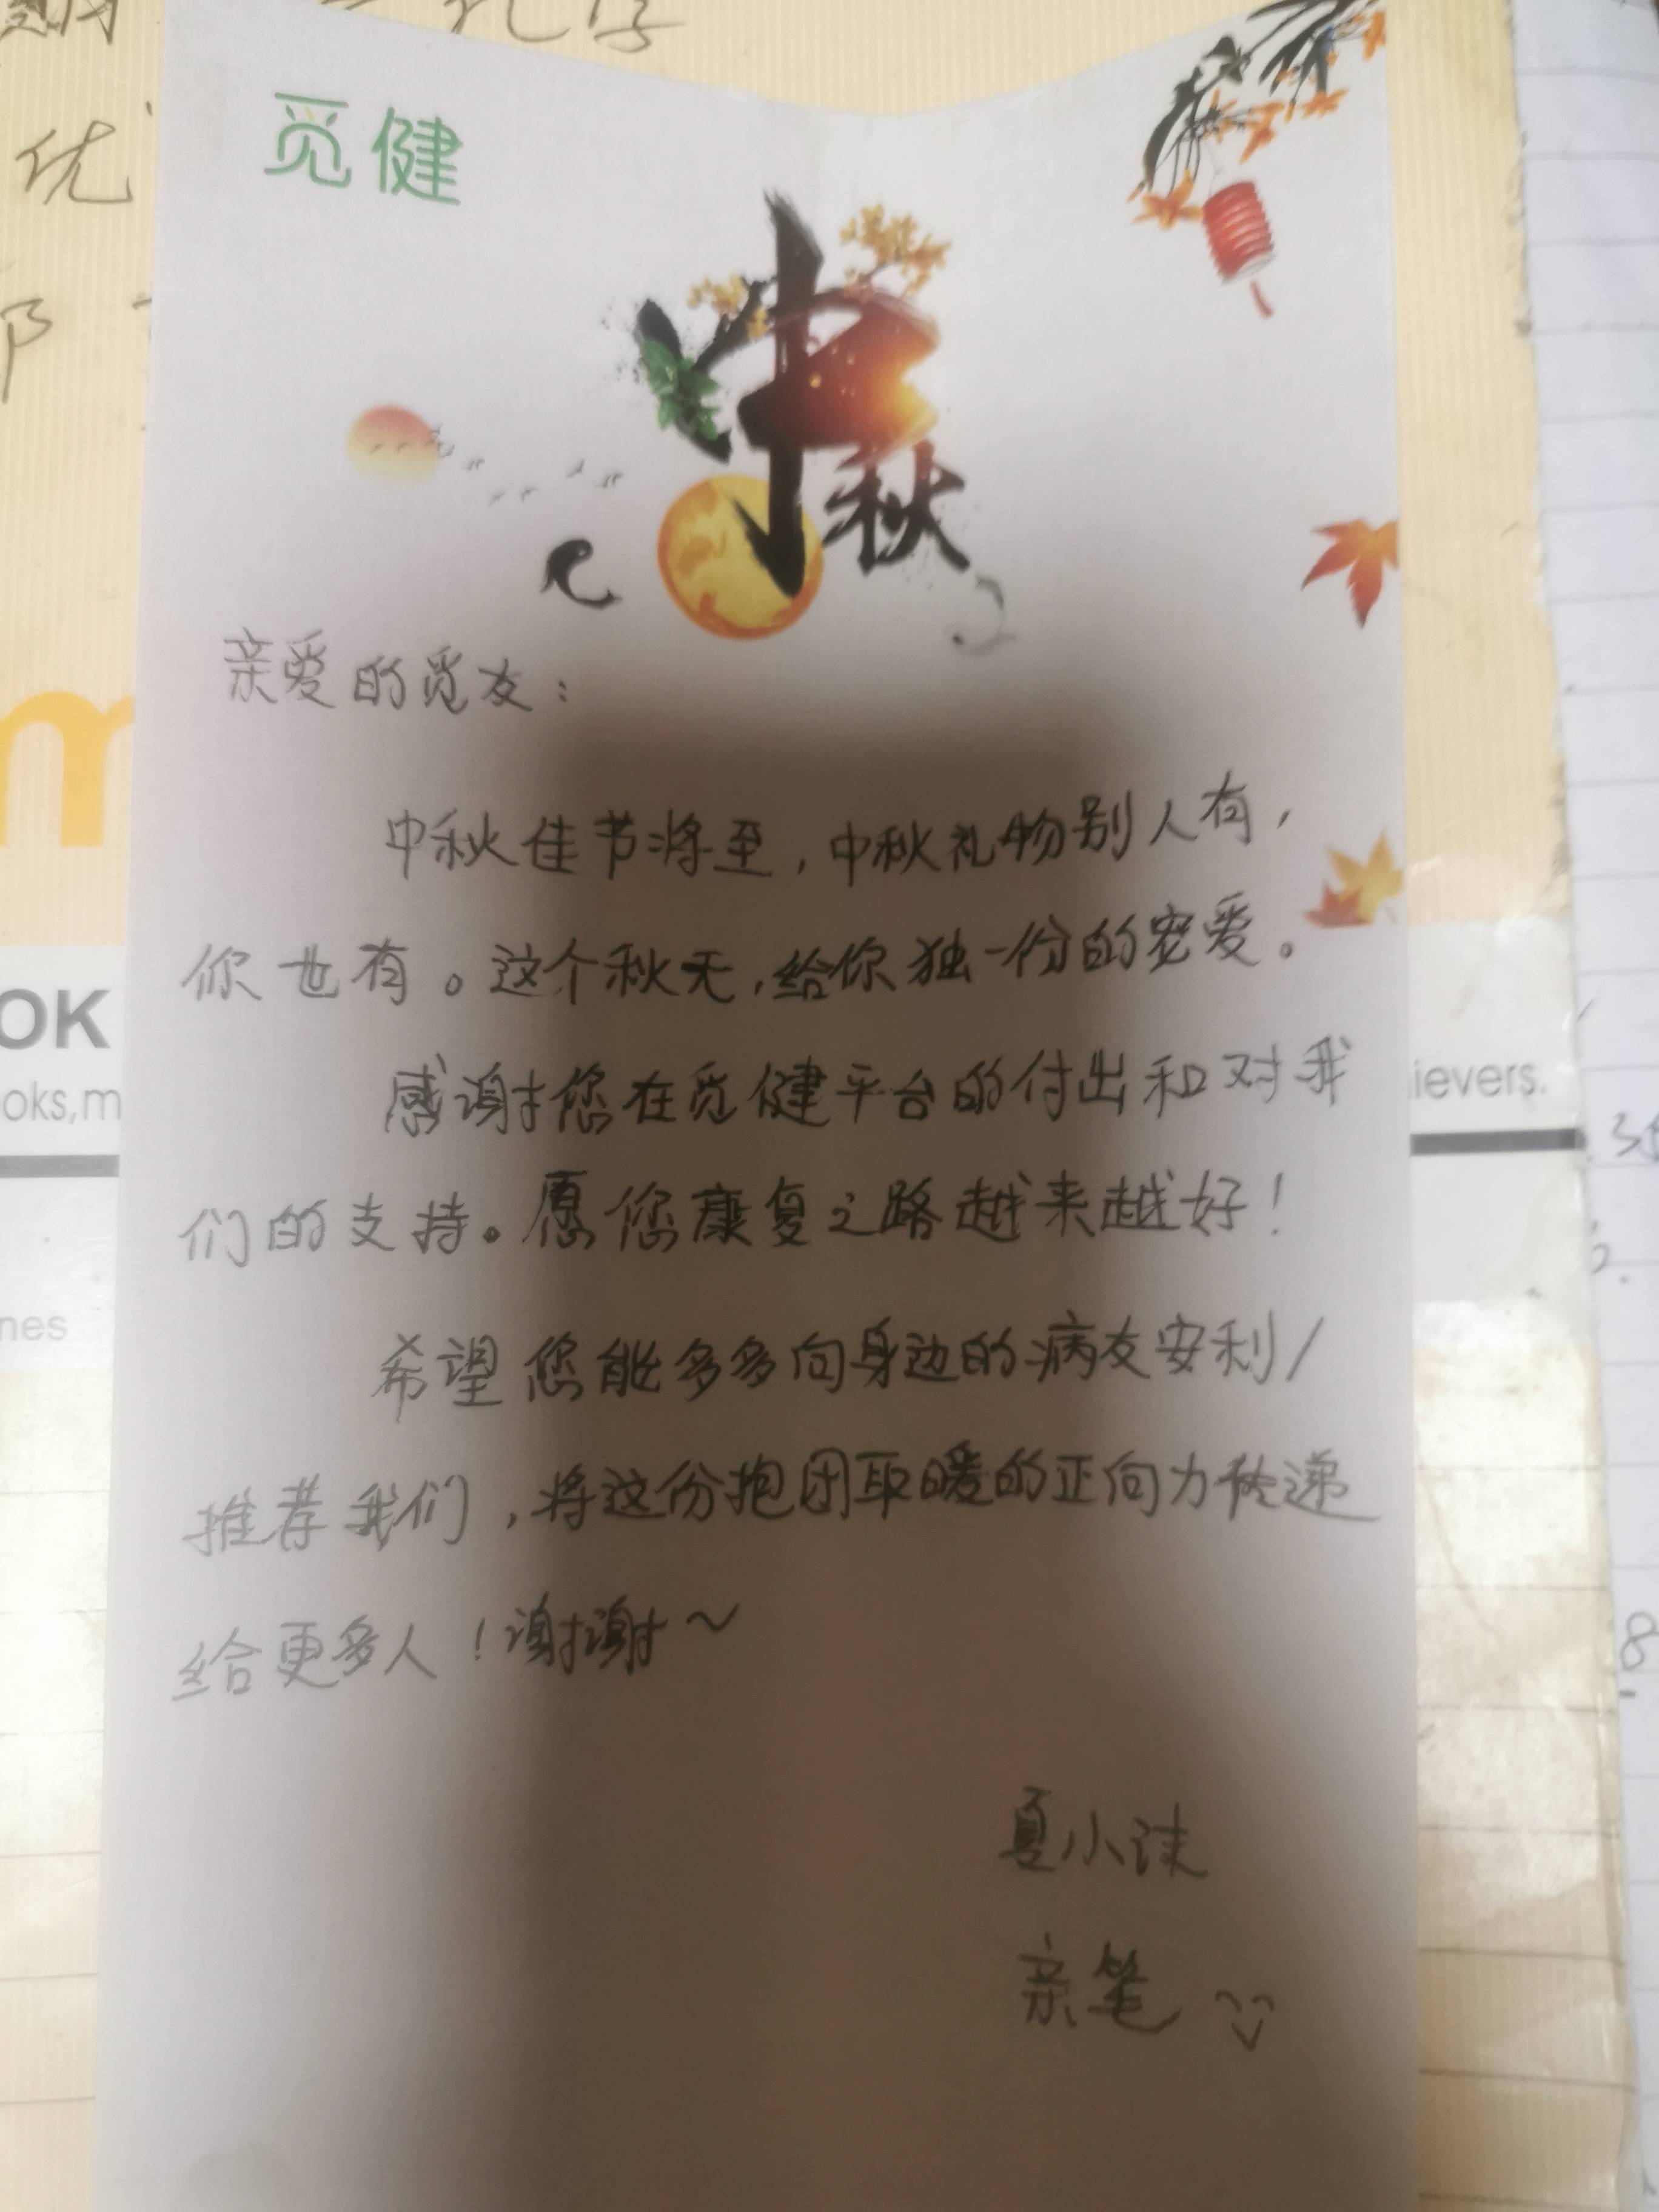 觅健
中秋
亲爱的觅友：
中秋佳节将至，中秋礼物别人有，
你也有。这个秋天，给你独一份的宠爱。
感谢您在觅健平台的付出和对我
们的支持。愿您康复之路越来越好！
希望您能多多向身边的病友安利/
推荐我们，将这份抱团取暖的正向力传递
给更多人！谢谢~
夏小沫
亲笔
优
m
OK
oks,m
ievers.
nes
8